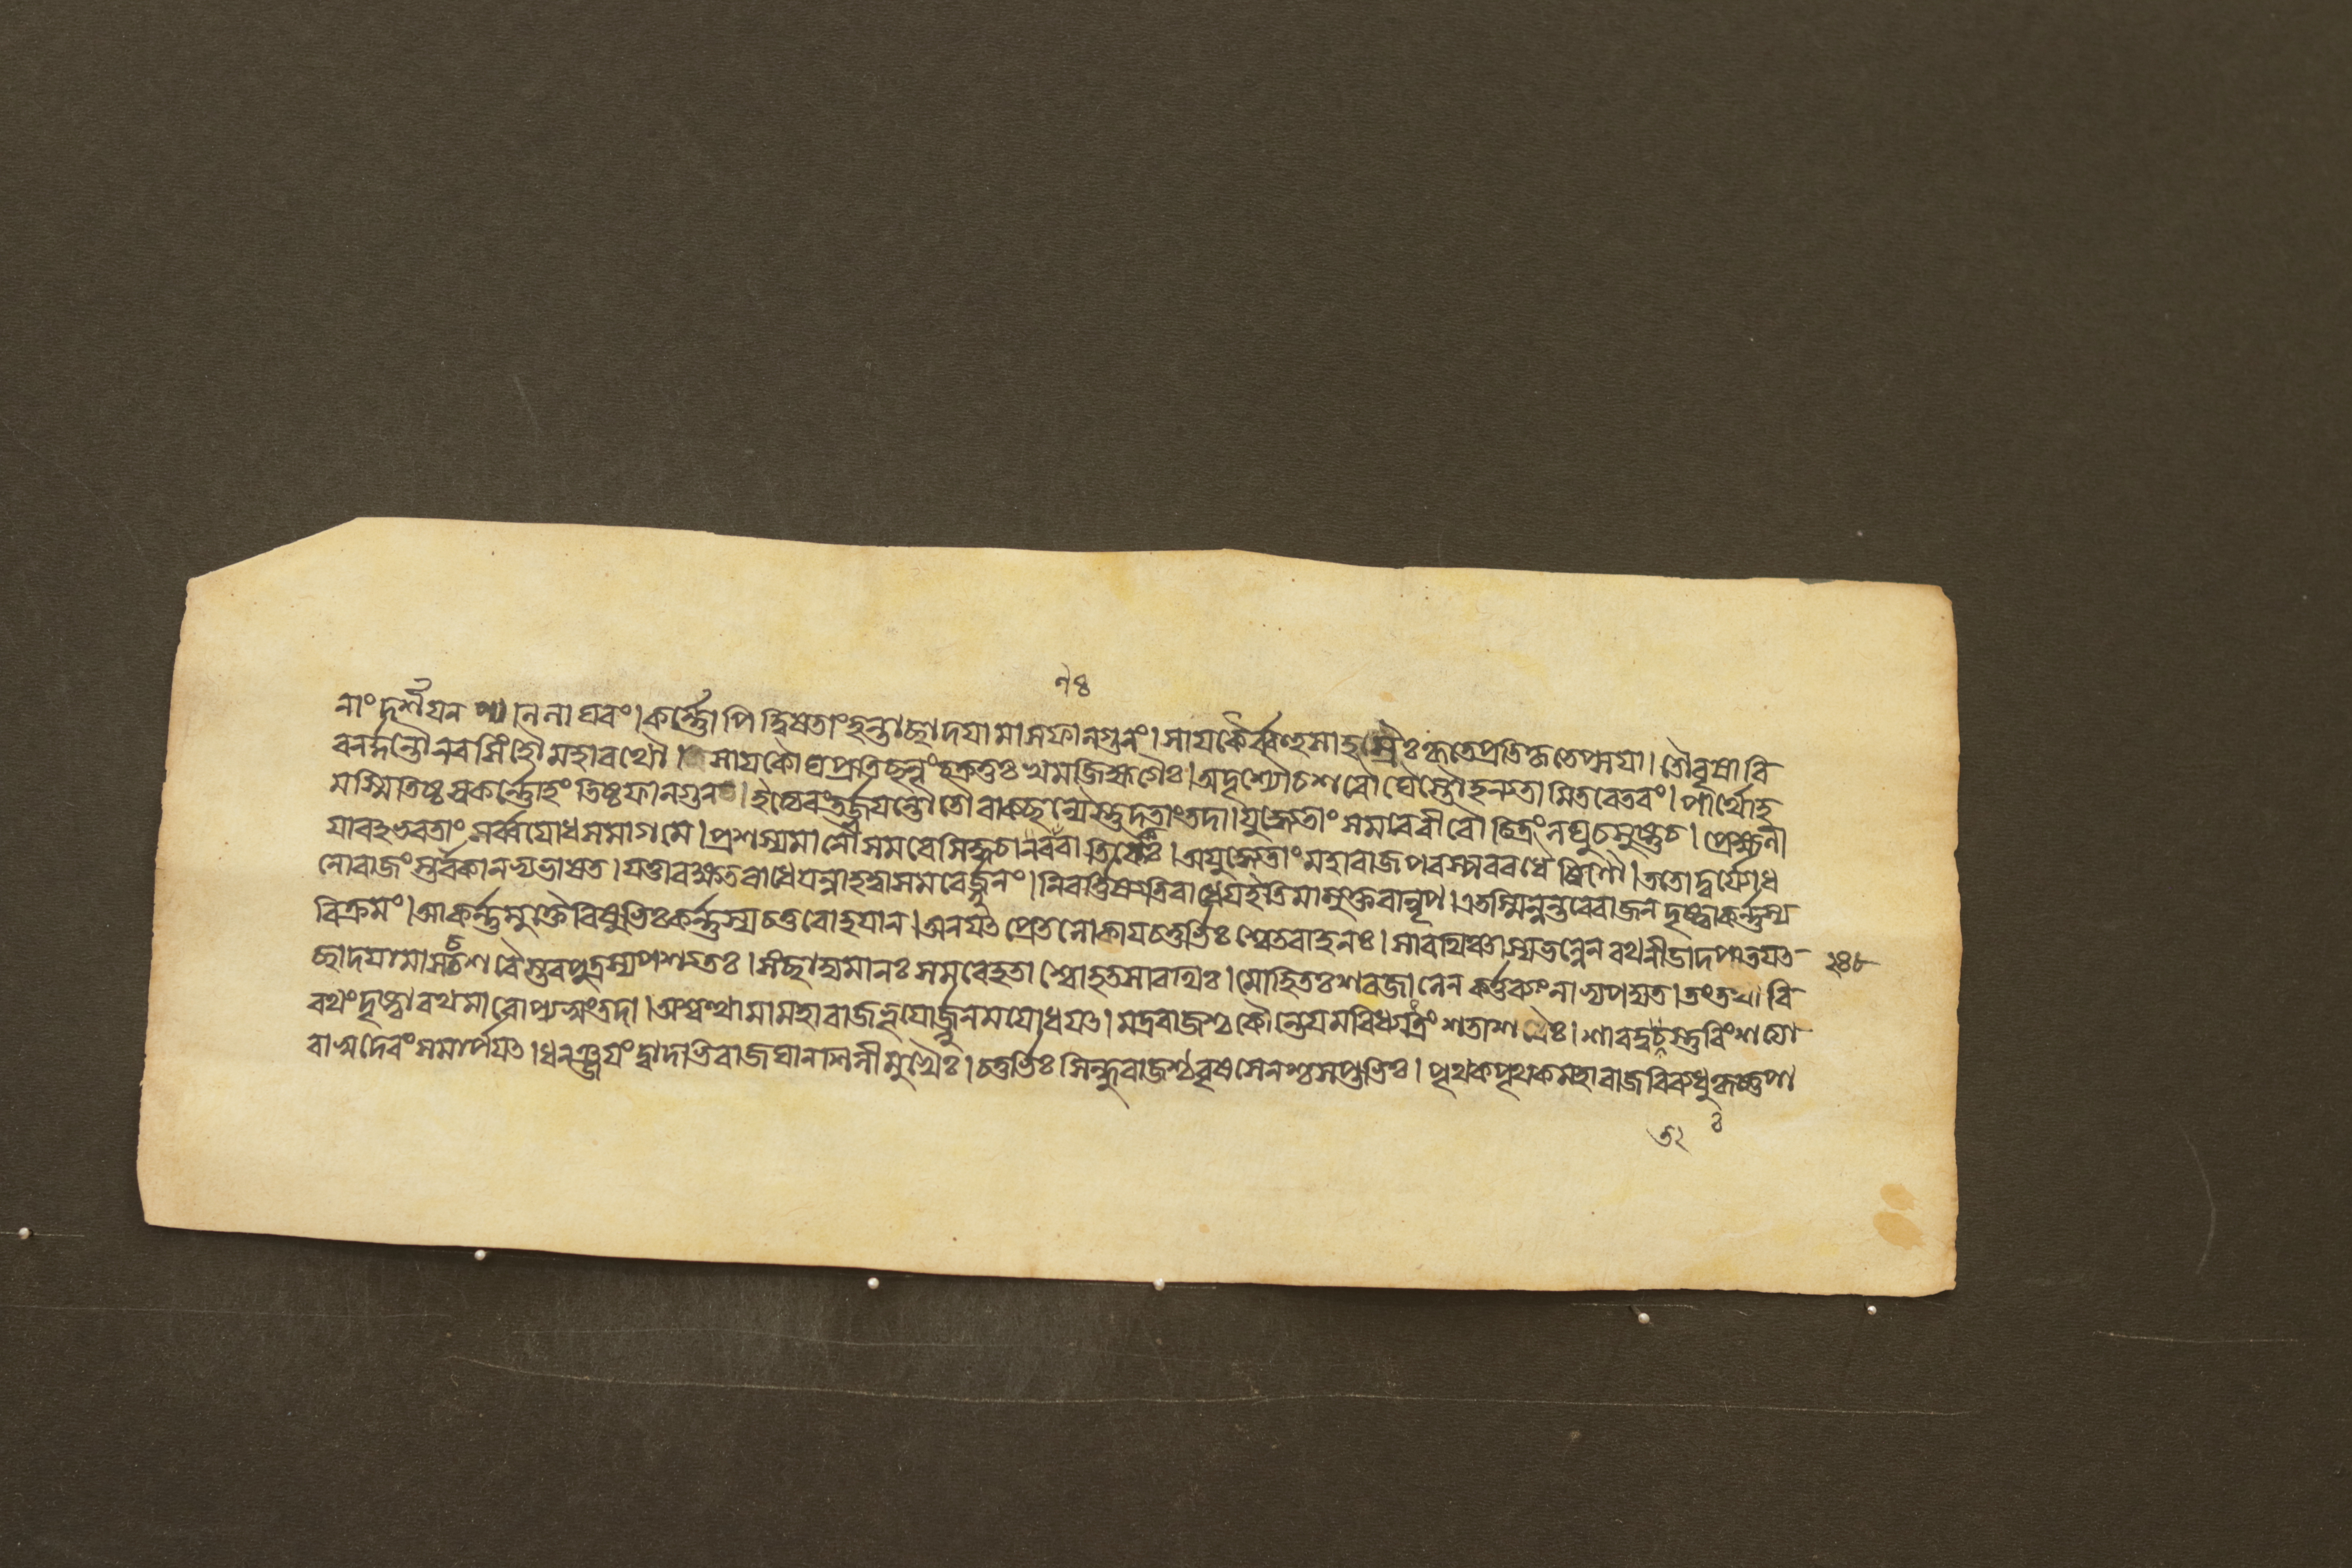 নাং দর্শযন পাণিলাঘবং। কর্ণ্ণোপিদ্বিষতাংহন্তাছাদযামাসফালগুনং। সাযকৈর্ব্বহুসাহস্রৈঃকৃতেপ্রতিকৃতেপ্সযা। তৌবৃষাবি
বনর্দ্দন্তৌনরসিংহৌমহারথৌ। সাযকৌঘপ্রতিছন্নংচক্রতুঃখমজিহ্মগৈঃ। অদৃশ্যৌচশরৌঘৈস্তৌহনন্তামিতরেতরং। পার্থোহ
মস্মিতিষ্ঠস্বকর্ণ্ণোহংতিষ্ঠফালগুন। ইত্যেবংতর্জ্জযন্তৌতৌবাক্ছল্যৈস্তুদতাংতদা। যুধ্যেতাংসমরেবীরৌচিত্রংলঘুচসুষ্ঠুচ। প্রেক্ষনী
যাবভবতাংসর্ব্বযোধসমাগমে। প্রশস্যমানৌসমরেসিদ্ধচারনবাতিকৈঃ। অযুধ্যেতাংমহারাজপরস্পরবধৈষিণৌ। ততোদুর্যোধ
নোরাজংস্তাবকানভ্যভাষত। যত্তারক্ষতরাধেযন্নাহত্বাসমরের্জ্জুনং। নিবর্ত্তিষ্যতিরাধেযইতিমামুক্তবান্নৃপ। এতস্মিন্নন্তরেরাজনদৃষ্ট্বাকর্ণ্ণস্য
বিক্রমং। আকর্ণ্ণমুক্তৈরিষুভিঃকর্ণ্ণস্যচতুরোহযান। অনযৎপ্রেতলোকাযচতুর্ভিঃশ্বেতবাহনঃ। সারথিঞ্চাস্যভল্লেনরথনীডাদপাতযৎ
ছাদযামাসচশরৈস্তবপুত্রস্যপশ্যতঃ। সংছাদ্যমানঃসমরেহতাশ্বোহতসারথিঃ। মোহিতঃশরজালেনকর্ত্তব্যংনাভ্যপদ্যত। তংতথাবি
২৪৮
রথংদৃষ্ট্বারথমারোপ্যস্বংতদা। অশ্বত্থামামহারাজভূযোর্জ্জুনমযোধযৎ। মদ্ররাজশ্চকৌন্তেযমবিধ্যত্ত্রিংশতাশরৈঃ। শারদ্বতস্তুবিংশত্যা
বাসুদেবংসমার্পযৎ। ধনঞ্জযংদ্বাদশভিরাজঘানশিলীমুখৈঃ। চতুর্ভিঃসিন্ধুরাজশ্চবৃষসেনশ্চসপ্তভিঃ। পৃথকপৃথকমহারাজবিব্যধুঃকৃষ্ণপা